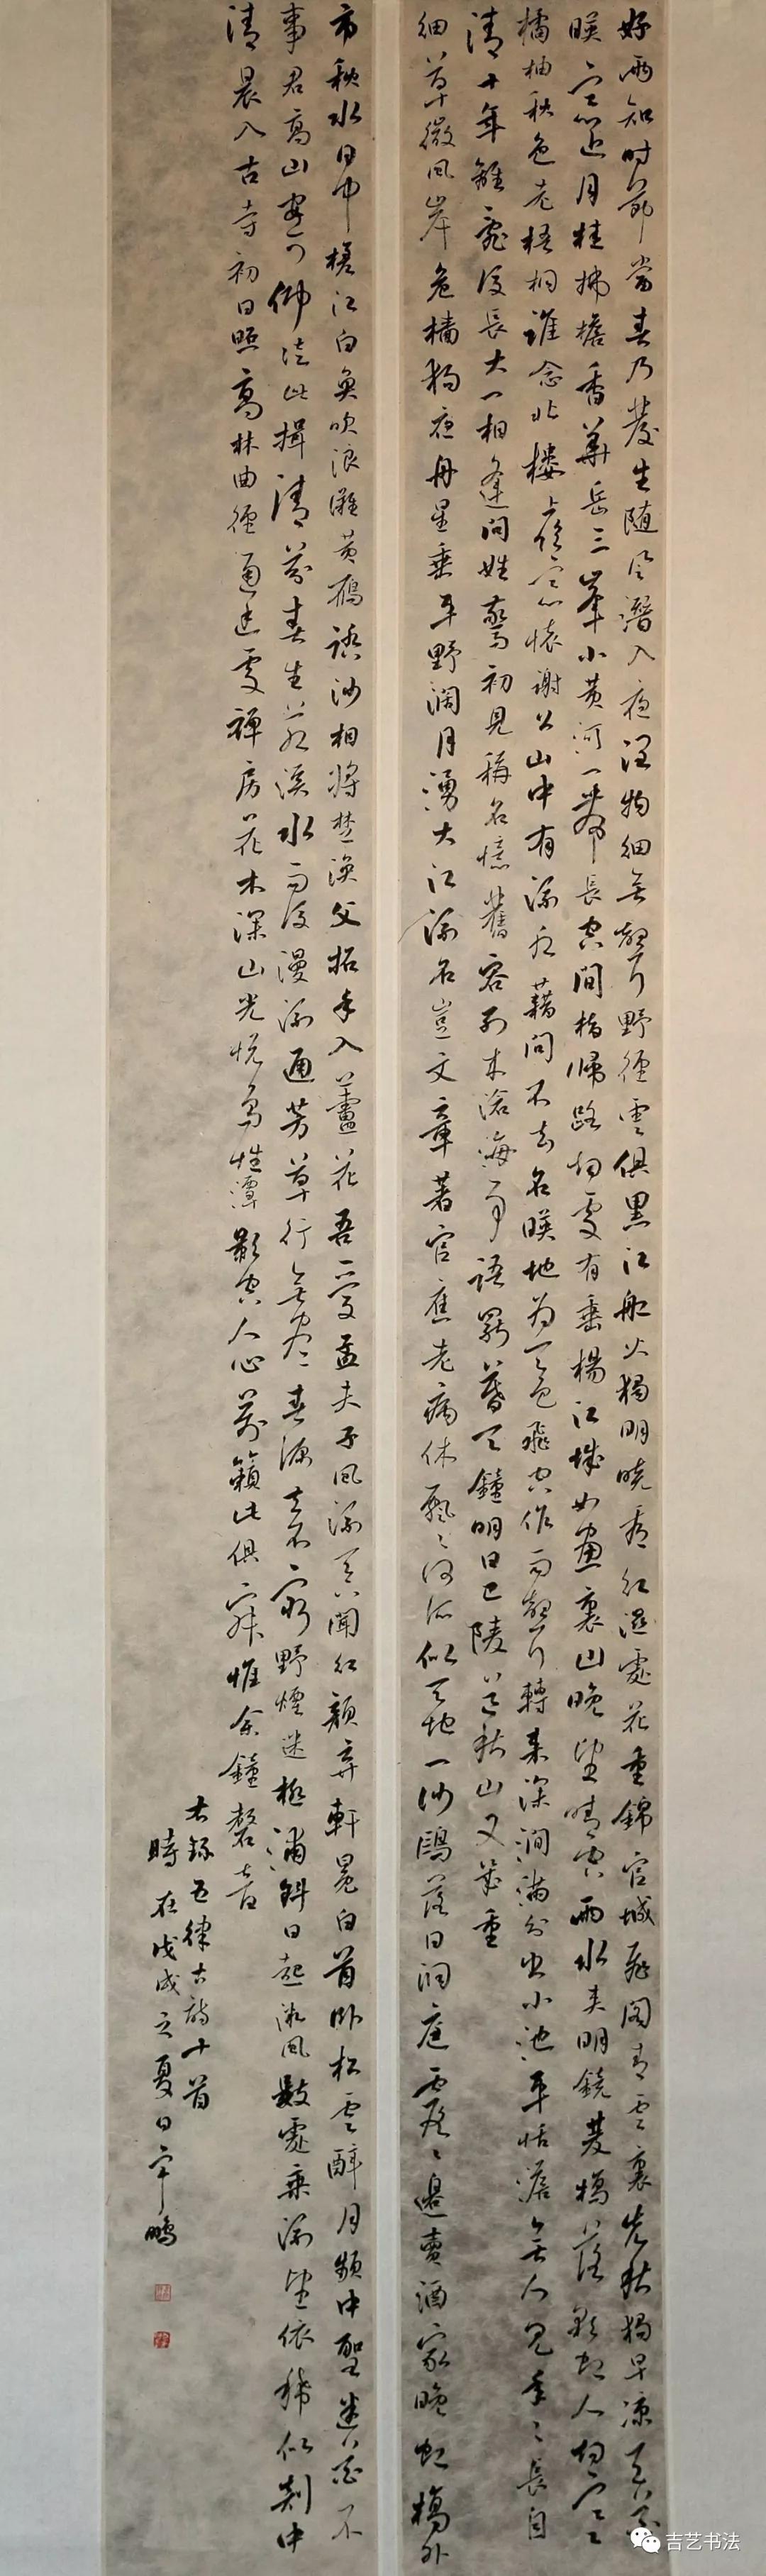 好雨知时节当春乃发生随风潜入夜润物细无声野径云俱黑江船火独明晓看红湿处花重锦官城飞阁青云里先秋独早凉天花
映窗近月桂拂檐香华岳三峰小黄河一带长空间指归路烟处有垂杨江城如画里山晚望晴空两水夹明镜双桥落彩虹人烟寒
橘柚秋色老梧桐谁念北楼上临风怀谢公山中有流水借问不知名映地为天色飞空作雨声转来深涧满分出小池平恬澹无人见年年长自
清十年离乱后长大一相逢问姓惊初见称名忆旧容别来沧海事语罢暮天钟明日巴陵道秋山又几重
细草微风岸危樯独夜舟星垂平野阔月涌大江流名岂文章著官应老病休飘飘何所似天地一沙鸥落日洞庭霞霞边卖酒家晚虹桥外
市秋水日中槎江白鱼吹浪滩黄雁踏沙相将楚渔父招手入芦花吾爱孟夫子风流天下闻红颜弃轩冕白首卧松云醉月频中圣迷花不
事君高山安可仰徒此揖清芬春生若溪水雨后漫流通芳草行无尽春源去不穷野烟迷极浦斜日起微风数处乘流望依稀似剡中
清晨入古寺初日照高林曲径通幽处禅房花木深山光悦鸟性潭影空人心万籁此俱寂惟余钟磬音
右录五律古诗十首
时在戊戌之夏日 鹏
吉艺书法